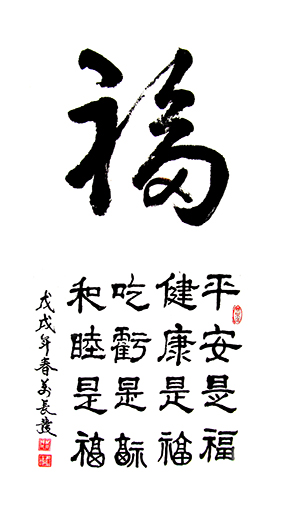 福
平安是福
健康是福
吃虧是福
和睦是福
戊戌年春長發